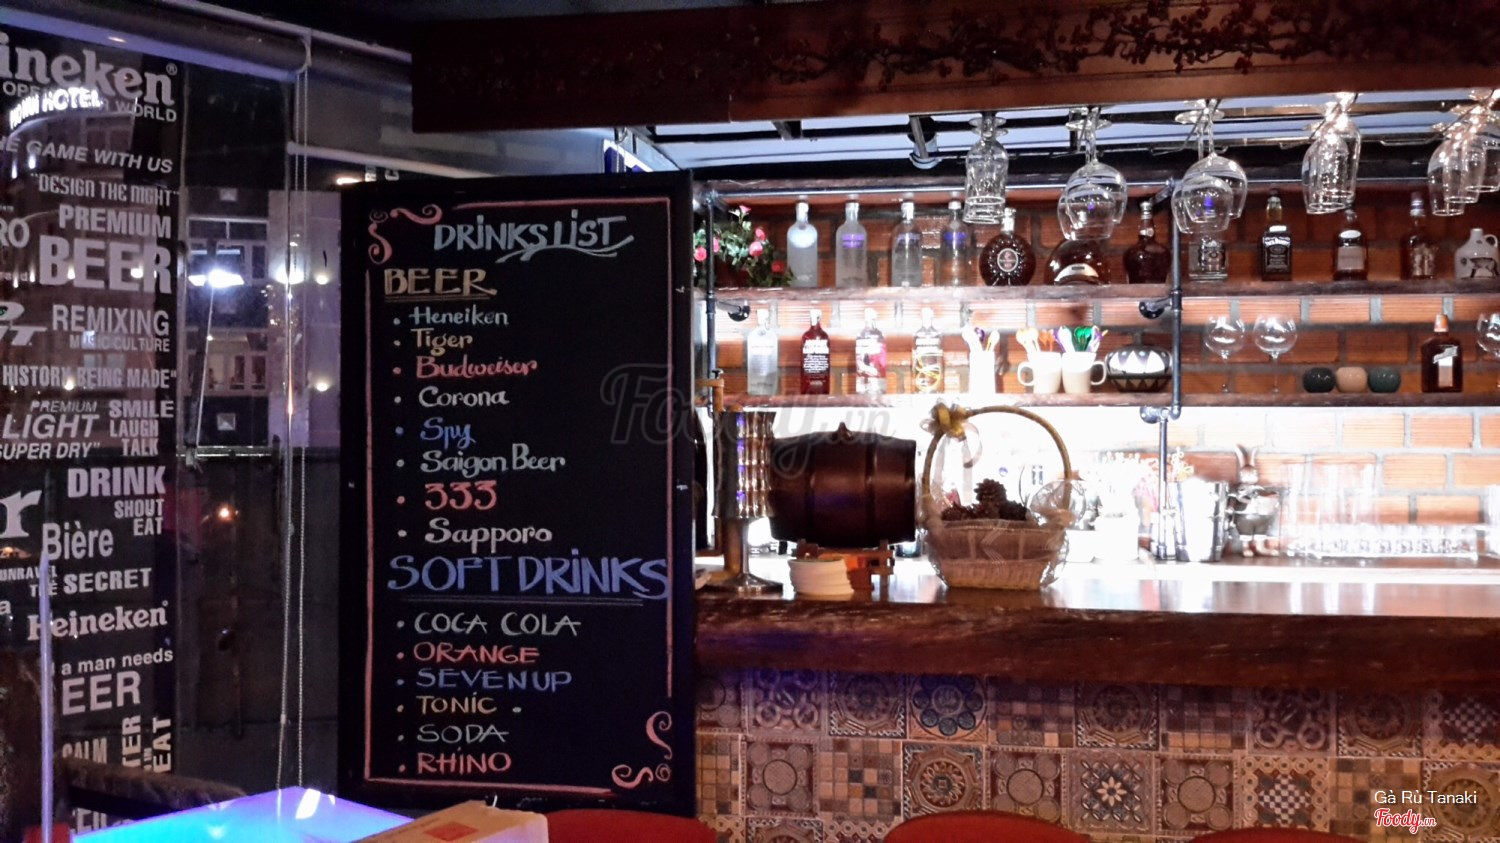 ineken®
OPE WORLD
HOTEL
E GAME WITH US
"DESIGN THE NIGHT"
PREMIUM
RO BEER
REMIXING
MUSIC CULTURE
HISTORY BEING MADE"
PREMIUM
LIGHT
SUPER DRY"
SMILE
LAUGH
TALK
DRINK
SHOUT
EAT
r
Bière
UNRAVEL
THE SECRET
Heineken®
a man needs
EER
CALM
EAT
DRINKS LIST
BEER
• Heneiken
• Tiger
• Budweiser
• Corona
• Spy
• Saigon Beer
• 333
• Sapporo
SOFT DRINKS
• COCA COLA
• ORANGE
• SEVEN UP
• TONIC •
• SODA
• RHINO
Foody.vn
Gà Rù Tanaki
Foody.vn